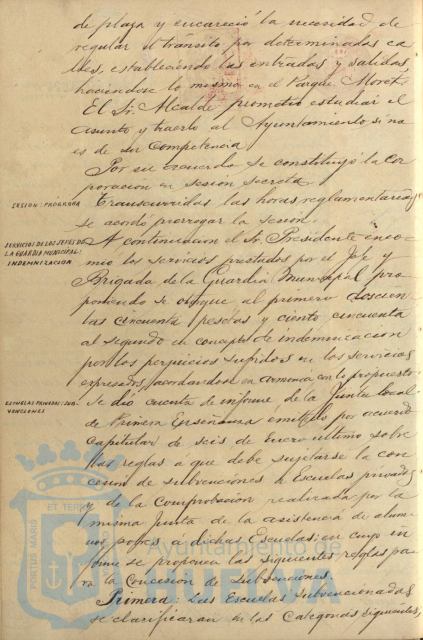 de plaza y encareció la necesidad de
regular el tránsito por determinadas ca
lles, estableciendo las entradas y salidas,
haciéndose lo mismo en el Parque Moret.
El Sr. Alcalde prometió estudiar el
asunto y traerlo al Ayuntamiento si no
es de su competencia.
Por su acuerdo se constituyó la Cor
poracion en sesión secreta.
SESION: PRÓRROGA
Transcurridas las horas reglamentarias
se acordó prorrogar la sesion.
SERVICIOS DE LOS JEFES DE
LA GUARDIA MUNICIPAL:
INDEMNIZACION
A continuacion el Sr. Presidente enco
mió los servicios prestados por el Jefe y
Brigada de la Guardia Municipal pro
poniendo se otorgue al primero doscien
tas cincuenta pesetas y ciento cincuenta
al segundo en concepto de indemnizacion
por los perjuicios sufridos en los servicios
expresados, acordandose en armonía con lo propuesto.
ESCUELAS PRIVADAS: SUB-
VENCIONES
Se dió cuenta de informe de la Junta local
de Primera Enseñanza emitido por acuerdo
Capitular de seis de Enero ultimo sobre
las reglas á que debe sujetarse la con
cesion de subvenciones á Escuelas privadas
y de la comprobacion realizada por la
misma Junta de la asistencia de alum
nos pobres á dichas Escuelas; en cuyo in
forme se proponen las siguientes reglas pa
ra la Concesion de Subvenciones.
Primera: Las Escuelas subvencionadas
se clasificaran en las Categorias siguientes;
PORTUS MARIS ET TERRÆ
Ayuntamiento de